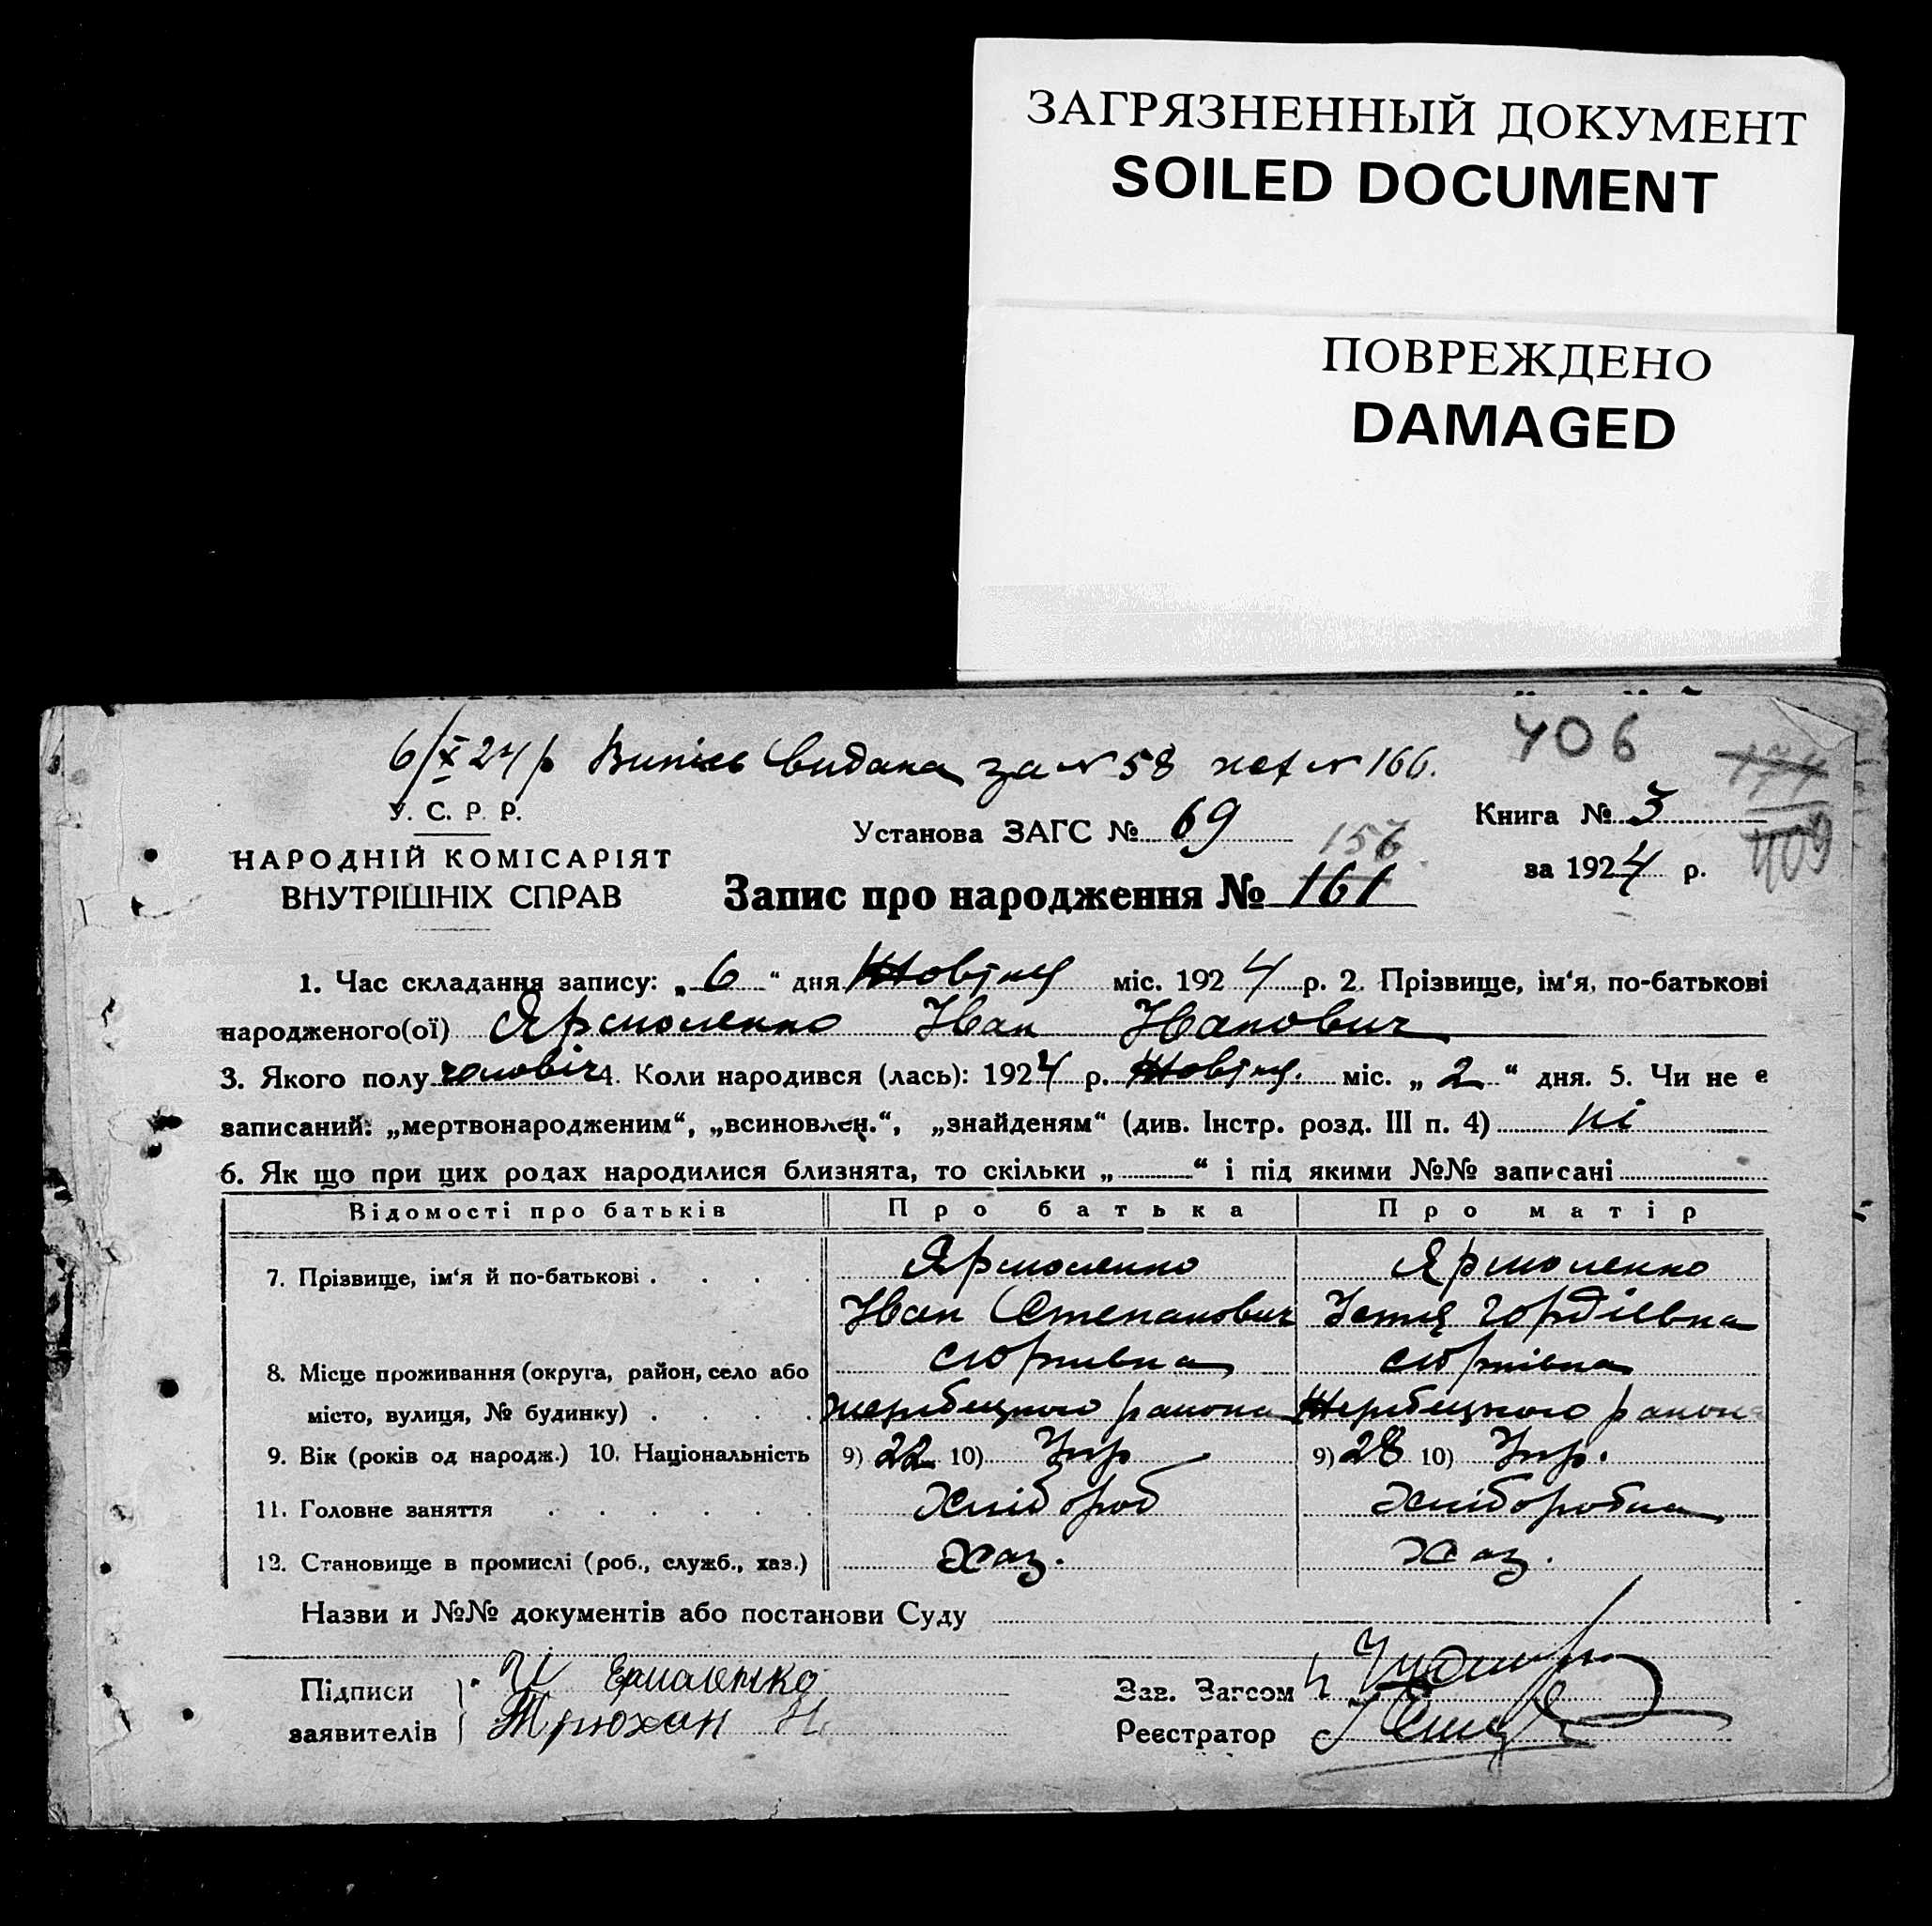 ЗАГРЯЗНЕННЫЙ ДОКУМЕНТ
SOILED DOCUMENT
ПОВРЕЖДЕНО
DAMAGED
406
6/X 24 р Випись видана за № 58 № 166.
174
У. С. Р. Р.
Установа ЗАГС № 69
Книга № 3
409
НАРОДНІЙ КОМІСАРІЯТ
156
за 1924 р.
ВНУТРІШНІХ СПРАВ
Запис про народження № 161
1. Час складання запису: „ 6 “ дня Жовтня міс. 1924 р. 2. Прізвище, ім‘я, по-батькові
народженого(ої) Ярмоленко Іван Іванович
3. Якого полу чоловіч 4. Коли народився (лась): 1924 р. Жовтня. міс. „ 2 “ дня. 5. Чи не є
записаний: „мертвонародженим“, „всиновлен.“, „знайденям“ (див. Інстр. розд. III п. 4) ні
6. Як що при цих родах народилися близнята, то скільки „ “ і під якими №№ записані
Відомості про батьків Про батька Про матір
7. Прізвище, ім‘я й по-батькові Ярмоленко Ярмоленко
Іван Степанович Устя Гордіевна
8. Місце проживання (округа, район, село або
місто, вулиця, № будинку) Жеребецького района Жеребецького района
9. Вік (років од народж.) 10. Національність 9) 22 10) Укр 9) 28 10) Укр.
11. Головне заняття Хлібороб Хліборобка
12. Становище в промислі (роб., служб., хаз.) Хаз. Хаз.
Назви и №№ документів або постанови Суду
Підписи И Ермоленко Зав. Загсом
заявителів Трюхан Н. Реєстратор